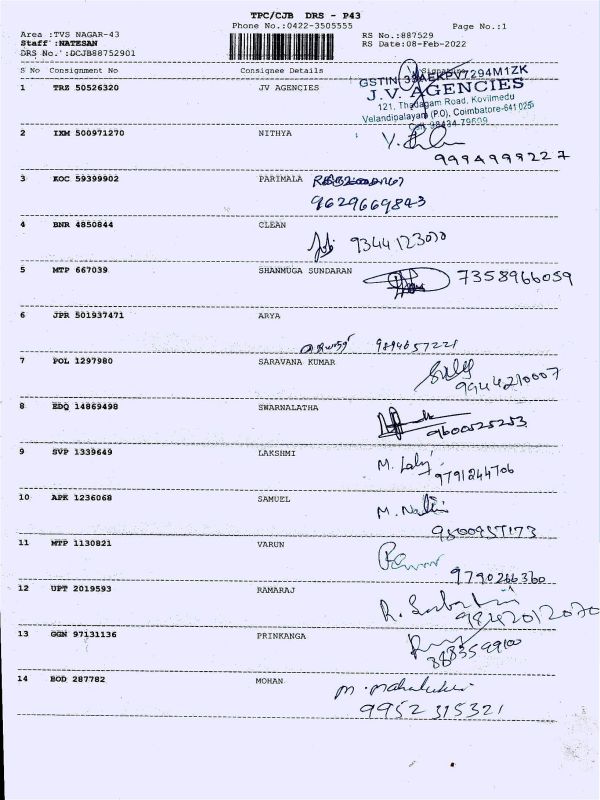 TPC/CJB DRS - P43
Phone No.:0422-3505555
Page No.:1
Area :TVS NAGAR-43
RS No.:887529
Staff :NATESAN
RS Date:08-Feb-2022
DRS No.:DCJB88752901
S No Consignment No Consignee Details Signature
1 TRZ 50526320 JV AGENCIES
GSTIN 33AEKPV7294M1ZK
J.V. AGENCIES
121, Thadagam Road, Kovilmedu
Velandipalayam (P.O), Coimbatore-641 025
Cell: 98434 79609
2 IXM 500971270 NITHYA
9994999227
3 KOC 59399902 PARIMALA
9629669843
4 BNR 4850844 CLEAN
9344123070
5 MTP 667039 SHANMUGA SUNDARAN 7358966059
6 JPR 501937471 ARYA
9894657221
7 POL 1297980 SARAVANA KUMAR
9944210007
8 EDQ 14869498 SWARNALATHA
9600525253
9 SVP 1339649 LAKSHMI
9791244706
10 APK 1236068 SAMUEL
9500957173
11 MTP 1130821 VARUN
9790266360
12 UPT 2019593 RAMARAJ
13 GGN 97131136 PRINKANGA
14 BOD 287782 MOHAN
9952315321